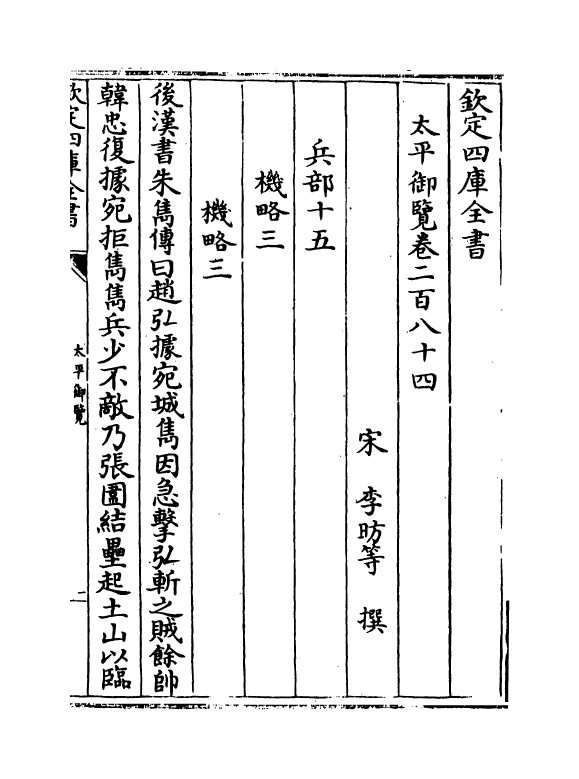 欽定四庫全書
太平御覽卷二百八十四
宋 李昉等 撰
兵部十五
機略三
機略三
後漢書朱雋傳曰趙弘據宛城雋因急擊弘斬之賊餘帥
韓忠復據宛拒雋雋兵少不敵乃張圍結壘起土山以臨
欽定四庫全書
太平御覽